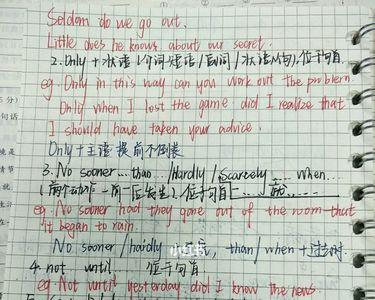 Seldom do we go out.
Little does he knows about our secret.
2. Only + 状语 (个词/短语/副词/状语从句), 位于句首
eg. Only in this way can you work out the problem.
Only when I lost the game did I realize that
I should have taken your advice.
Only + 主语 提前不倒装
3. No sooner...than.../hardly/scarcely...when...
(两个动作一前一后发生), 位于句首
eg. No sooner had they gone out of the room than
it began to rain.
No sooner/hardly than/when + 过去时.
4. not until 位于句首
eg. Not until yesterday did I know the news.
分)
句话